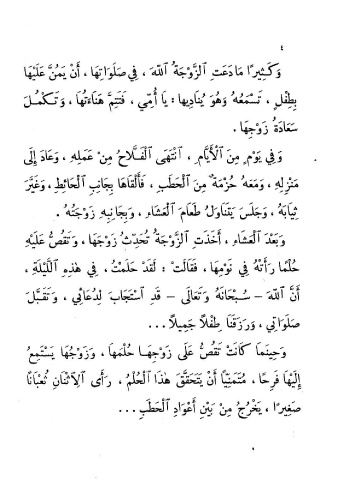 ٤
وَكَثِيرًا مَا دَعَتِ ٱلزَّوْجَةُ ٱللهَ ، فِي صَلَوَاتِهَا ، أَنْ يَمُنَّ عَلَيْهَا
بِطِفْلٍ ، تَسْمَعُهُ وَهُوَ يُنَادِيهَا : يَا أُمِّي ، فَتَتِمَّ هَنَاءَتُهَا ، وَتَكْمُلَ
سَعَادَةُ زَوْجِهَا .
وَفِي يَوْمٍ مِنَ ٱلْأَيَّامِ ، ٱنْتَهَى ٱلْفَلَّاحُ مِنْ عَمَلِهِ ، وَعَادَ إِلَى
مَنْزِلِهِ ، وَمَعَهُ حُزْمَةٌ مِنَ ٱلْحَطَبِ ، فَأَلْقَاهَا بِجَانِبِ ٱلْحَائِطِ ، وَغَيَّرَ
ثِيَابَهُ ، وَجَلَسَ يَتَنَاوَلُ طَعَامَ ٱلْعَشَاءِ ، وَبِجَانِبِهِ زَوْجَتُهُ .
وَبَعْدَ ٱلْعَشَاءِ ، أَخَذَتِ ٱلزَّوْجَةُ تُحَدِّثُ زَوْجَهَا ، وَتَقُصُّ عَلَيْهِ
حُلْمًا رَأَتْهُ فِي نَوْمِهَا ، فَقَالَتْ : لَقَدْ حَلَمْتُ ، فِي هٰذِهِ ٱللَّيْلَةِ ،
أَنَّ ٱللهَ – سُبْحَانَهُ وَتَعَالَى – قَدِ ٱسْتَجَابَ لِدُعَائِي ، وَتَقَبَّلَ
صَلَوَاتِي ، وَرَزَقَنَا طِفْلًا جَمِيلًا ...
وَحِينَمَا كَانَتْ تَقُصُّ عَلَى زَوْجِهَا حُلْمَهَا ، وَزَوْجُهَا يَسْتَمِعُ
إِلَيْهَا فَرِحًا ، مُتَمَنِّيًا أَنْ يَتَحَقَّقَ هٰذَا ٱلْحُلْمُ ، رَأَى ٱلِٱثْنَانِ ثُعْبَانًا
صَغِيرًا ، يَخْرُجُ مِنْ بَيْنِ أَعْوَادِ ٱلْحَطَبِ ...